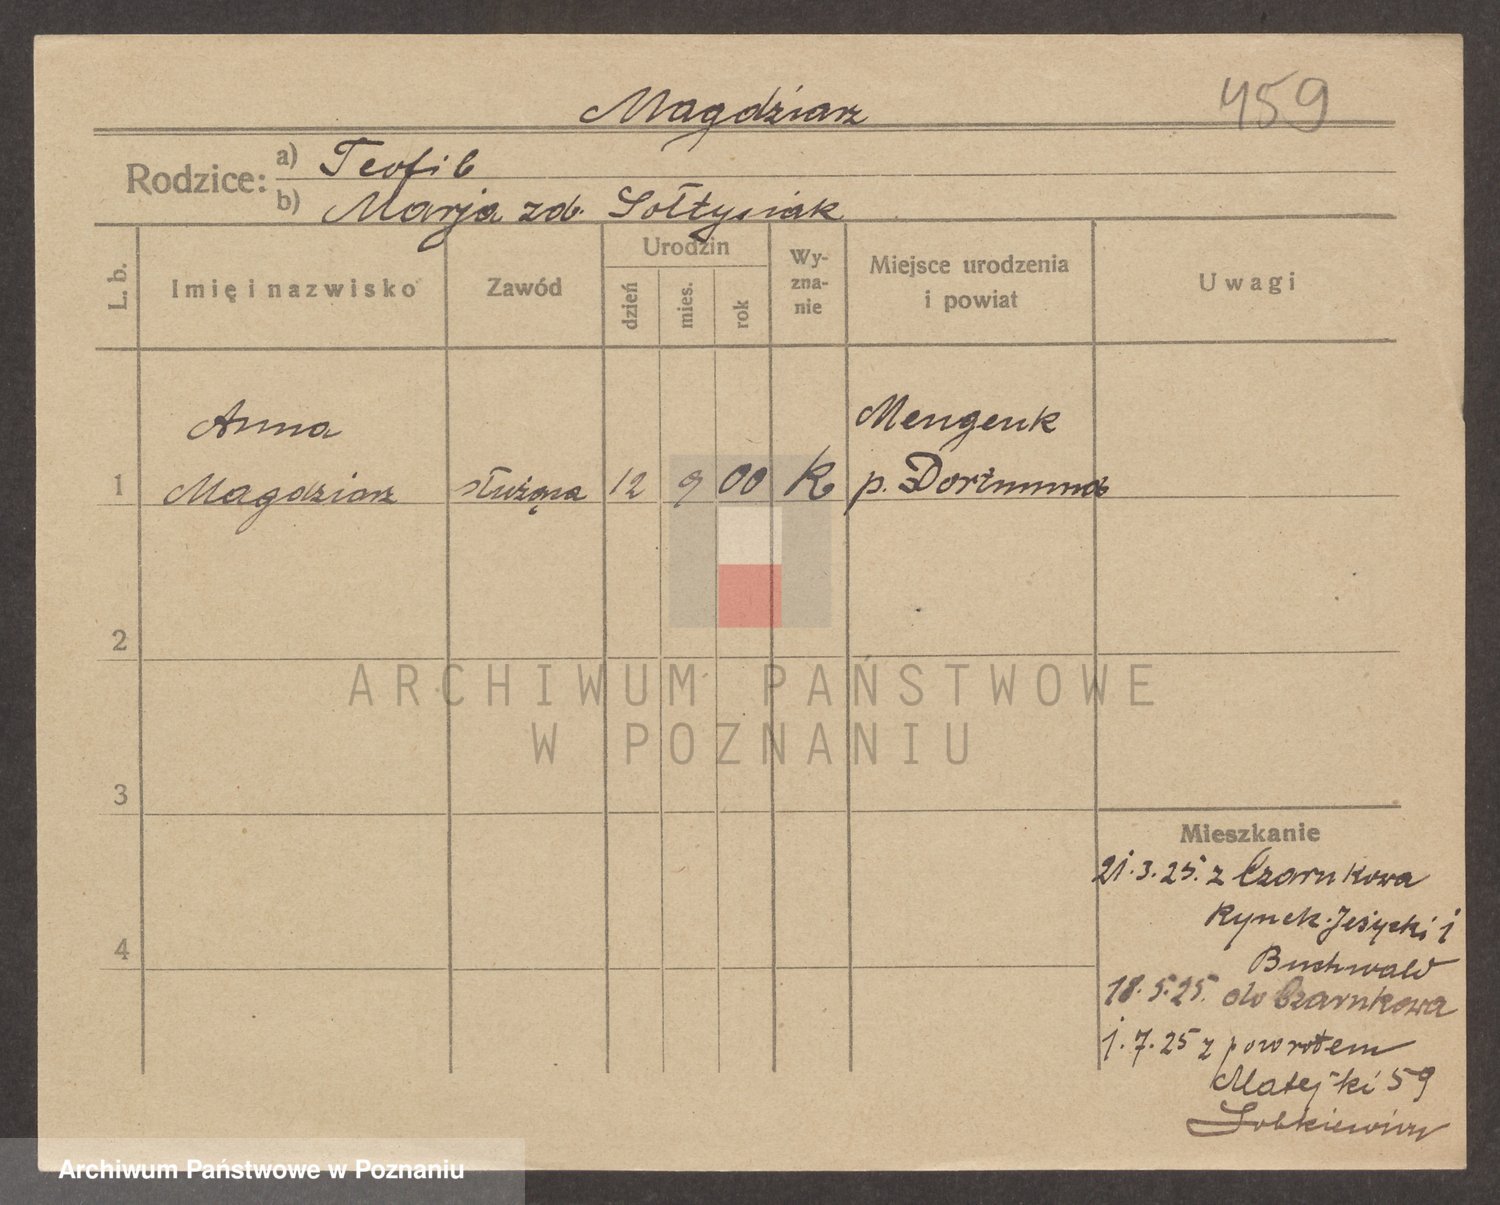 Magdziarz
459
Rodzice:
a) Teofil
b) Marja zd. Sołtysiak
L. b.
Imię i nazwisko
Zawód
Urodzin
dzień
mies.
rok
Wy-
zna-
nie
Miejsce urodzenia
i powiat
Uwagi
Anna
Mengenk
1 Magdziarz służąca 12 9 00 K p. Dortmund
2
ARCHIWUM PAŃSTWOWE
W POZNANIU
3
4
Mieszkanie
21.3.25. z Czarnkowa
Rynek Jeżycki 1
Buchwald
18.5.25. do Czarnkowa
1.7.25 z powrotem
Matejki 59
Archiwum Państwowe w Poznaniu